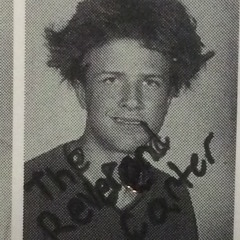 The
Reverend
Carter